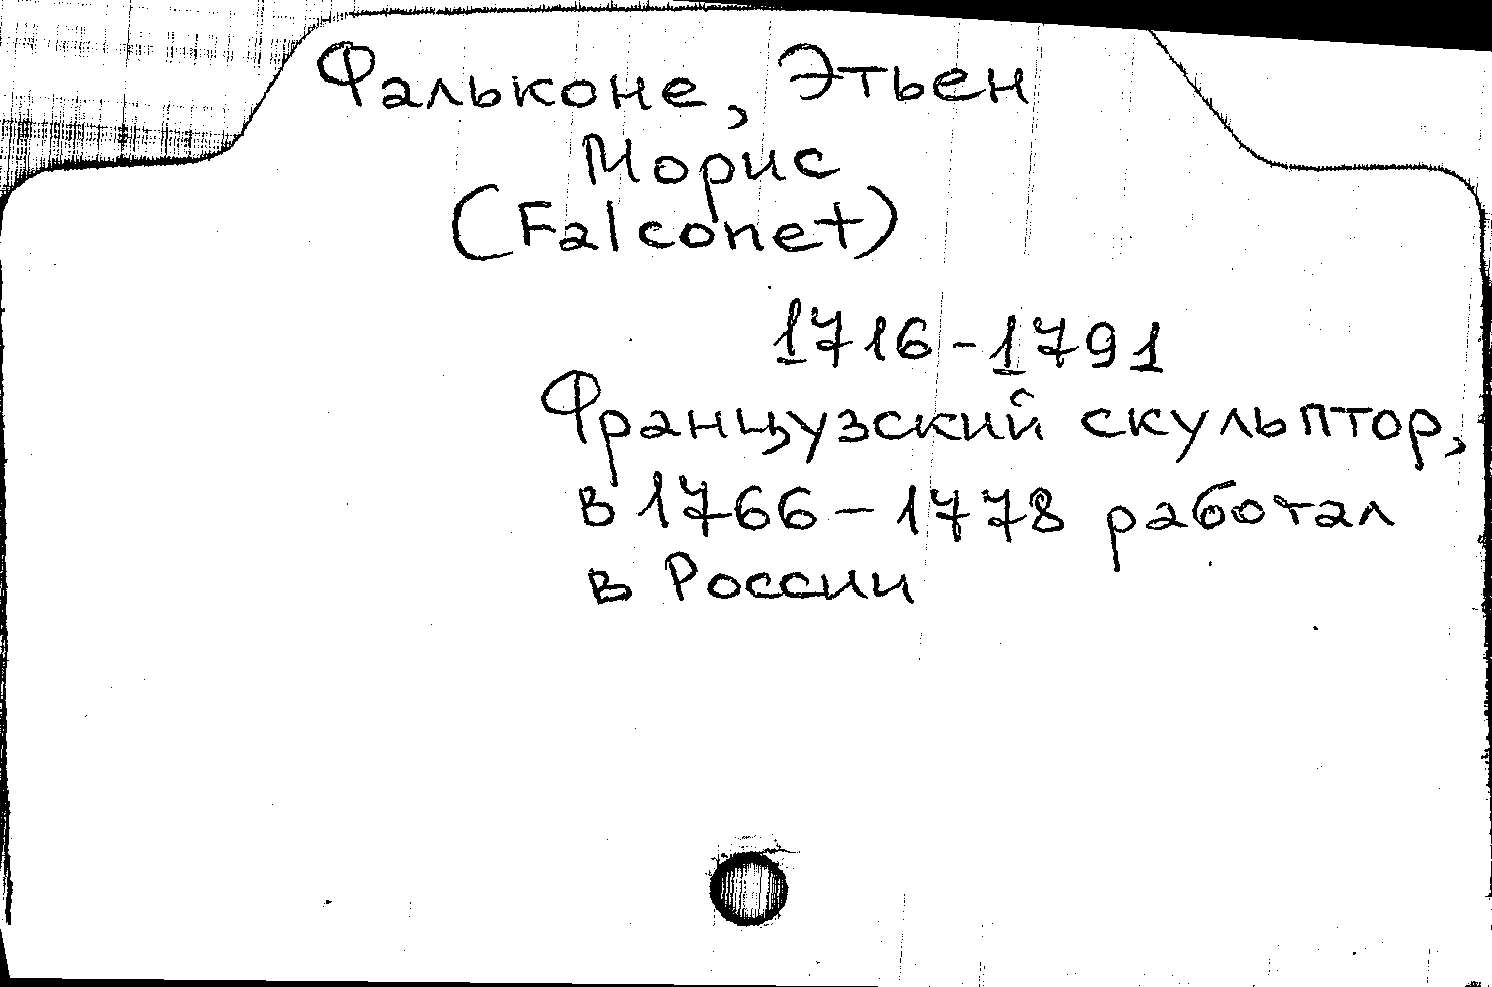 Фальконе, Этьен
Морис
(Falconet)
1716-1791
Французский скульптор,
в 1766-1778 работал
в России